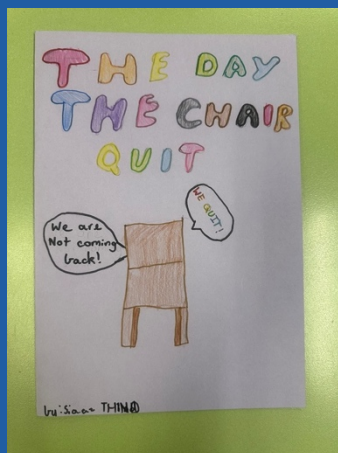 THE DAY
THE CHAIR
QUIT
We are
Not coming
back!
WE QUIT!
by: